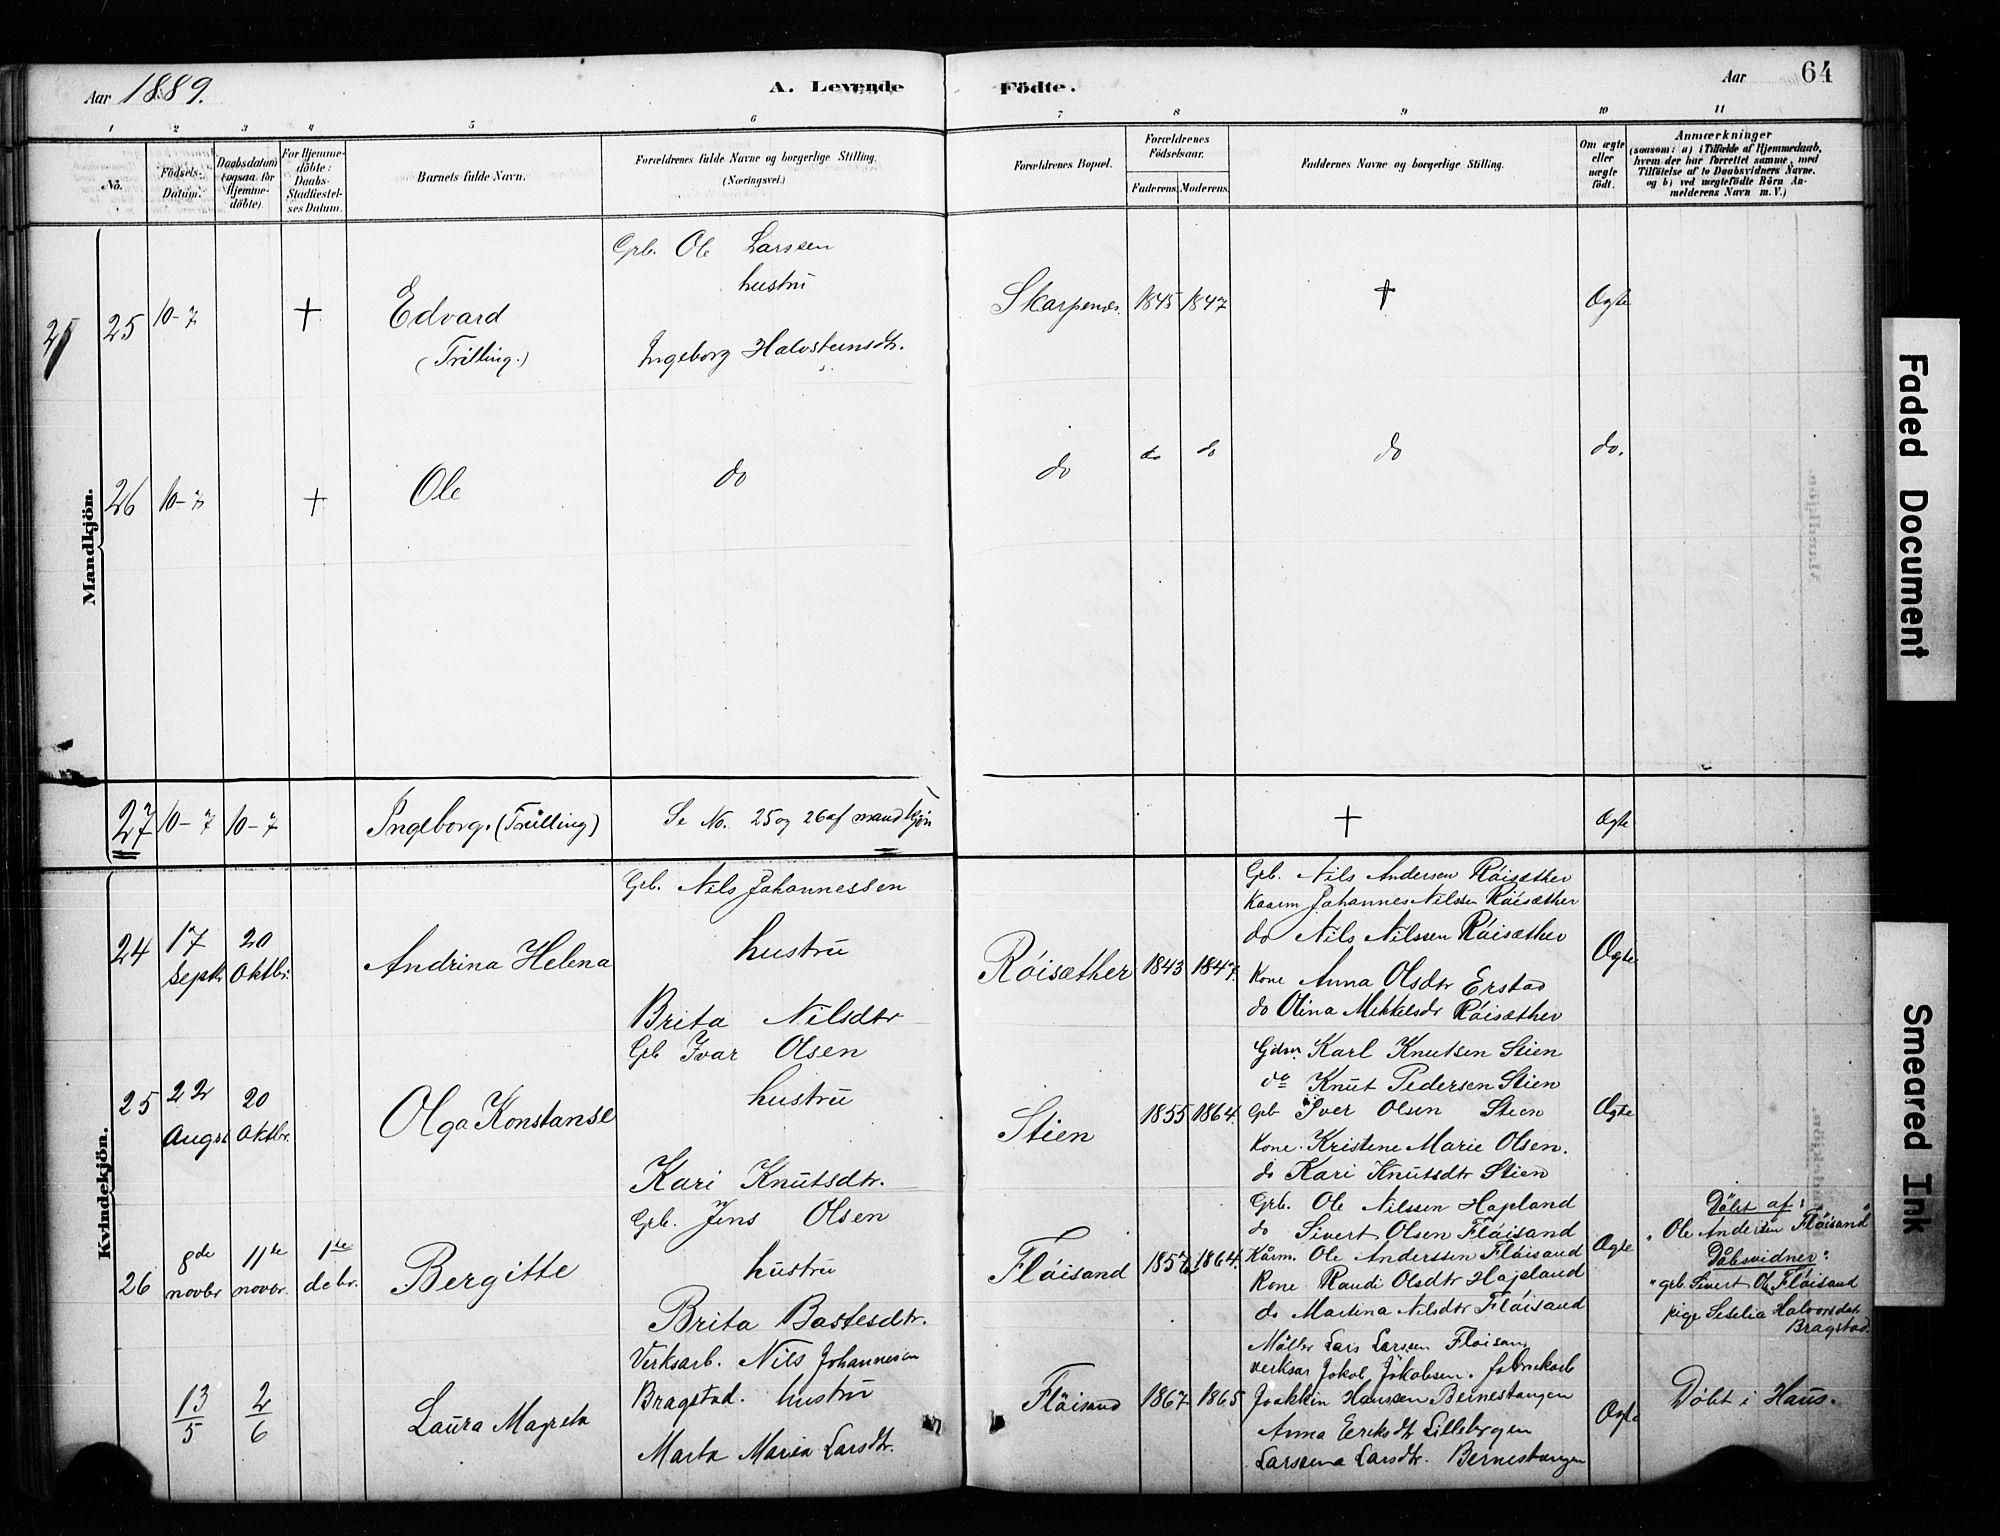 Aar 1889.
A. Levende
Födte.
Aar
64
1 2 3 4 5 6 7 8 9 10 11
No.
Födsels-Datum.
Daabsdatum (ogsaa for Hjemme-döbte).
For Hjemme-döbte: Daabs-Stadfæstel-ses Datum.
Barnets fulde Navn.
Forældrenes fulde Navne og borgerlige Stilling. (Næringsvei.)
Forældrenes Bopæl.
Forældrenes Födselsaar.
Faderens. Moderens.
Faddernes Navne og borgerlige Stilling.
Om ægte eller uægte født.
Anmærkninger
(saasom: a) i Tilfælde af Hjemmedaab,
hvem der har forrettet samme, med
Tilföielse af to Daabsvidners Navne.
og b) ved uægtefödte Börn An-
melderens Navn m. V.)
Mandkjön.
25 25 10-7 + Edvard
(Trilling.)
Grb. Ole Larssen
hustru
Ingeborg Halvsteinsdtr.
Skarpenes 1845 1847 + Ægte
26 10-7 + Ole do do do do do do.
27 10-7 10-7 Ingeborg. (Trilling) Se No. 25 og 26 af mandkjön + Ægte
Kvindekjön.
24 17 Septr 20 Oktbr. Andrina Helena
Grb. Nils Johannessen
hustru
Brita Nilsdtr
Röisæther 1843 1847.
Grb. Nils Andersen Röisæther
Kaarm Johannes Nilssen Röisæther
do Nils Nilssen Röisæther
Kone Anna Olsdtr Erstad
do Olina Mikkelsdr Röisæther
Ægte
25 22 August 20 Oktbr. Olga Konstanse
Grb Ivar Olsen
hustru
Kari Knutsdtr.
Stien 1855 1864.
Gjdm. Karl Knutsen Stien
do Knut Pedersen Stien
Grb Iver Olsen Stien
Kone Kristene Marie Olsen.
do Kari Knutsdtr Stien
Ægte
26 8de novbr 11te novbr. 1ste debr. Bergitte
Grb. Jens Olsen
hustru
Brita Bastesdtr.
Flöisand 1857 1864.
Grb. Ole Nilssen Hopland
do Sivert Olsen Flöisand
Kårm. Ole Anderssen Flöisand
Kone Randi Olsdtr Hopland
do Martina Nilsdtr Flöisand
Ægte
Döbt af:
"Ole Andersen Flöisand"
Dåbsvidner:
"grb. Sivert Ols. Flöisand
pige Seselia Halvorsdatr
Bragstad.
13/5 2/6 Laura Magreta
Verksarb. Nils Johannesen
Bragstad. hustru
Marta Maria Larsdtr.
Flöisand 1867 1865
Möller Lars Larssen Flöisand
verksar Jakob Jakobsen. fabrikarb
Joakkin Hanssen Bernestangen
Anna Eriksdtr Lillebergen
Larssena Larsdtr. Bernestangen
Ægte
Döbt i Haus.
Faded Document
Smeared Ink